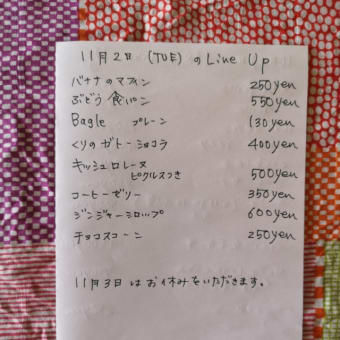 11月2日 (TUE) のLine Up
バナナのマフィン 250yen
ぶどう食パン 550yen
Bagle プレーン 130yen
くりのガトーショコラ 400yen
キッシュロレーヌ
ピクルスつき 500yen
コーヒーゼリー 350yen
ジンジャーシロップ 600yen
チョコスコーン 250yen
11月3日はお休みをいただきます。